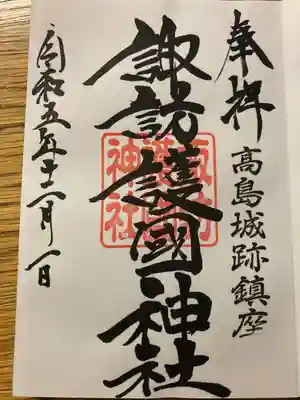 奉拝
高島城跡鎮座
諏訪護國神社
令和五年十二月一日